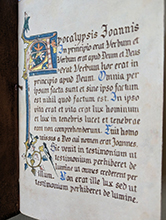 Apocalypsis Ioannis
In principio erat Verbum et
Verbum erat apud Deum et Deus
erat Verbum. Hoc erat in
principio apud Deum. Omnia per
ipsum facta sunt et sine ipso factum
est nihil quod factum est. In ipso
vita erat et vita erat lux hominum
et lux in tenebris lucet et tenebrae
eam non comprehenderunt. Fuit homo
missus a Deo cui nomen erat Joannes.
Hic venit in testimonium ut
testimonium perhiberet de
lumine ut omnes crederent per
illum. Non erat ille lux sed ut
testimonium perhiberet de lumine.